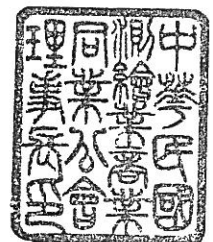 中華民國
測繪業商業
同業公會
理事長印